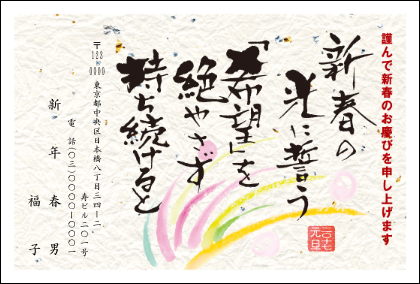 謹んで新春のお慶びを申し上げます
新春の
光に誓う
「希望」を
絶やさず
持ち続けると
二〇一七
元旦
〒123-0000
東京都中央区日本橋八丁目三四-二
寿ビル二〇一号
電話(〇三)〇〇〇〇-〇〇〇一
新年春男
福子